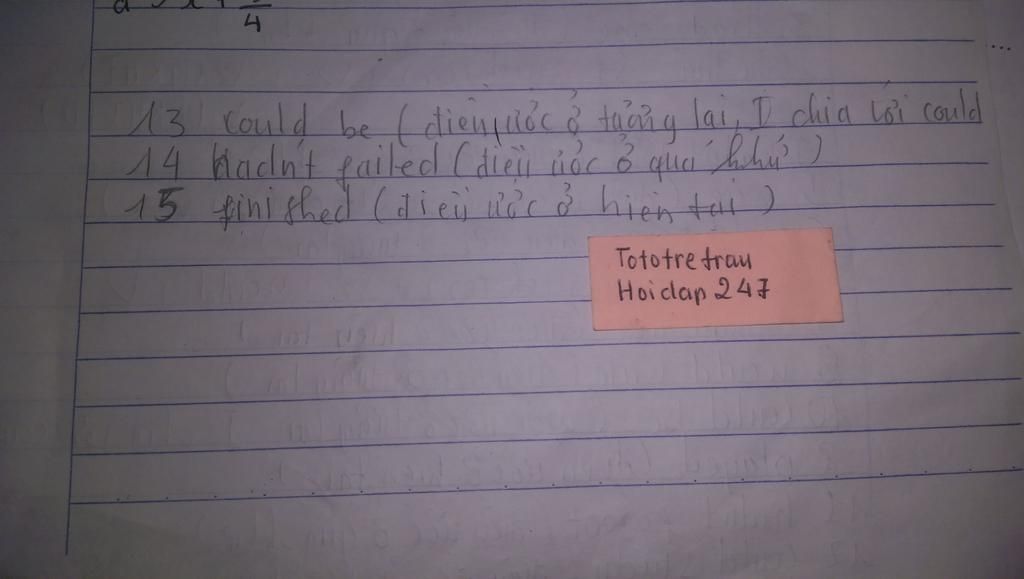 4
13 could be (điều ước ở tương lai, I chia với could
14 Hadn't failed (điều ước ở quá khứ)
15 finished (điều ước ở hiện tại)
Tototretrau
Hoidap 247